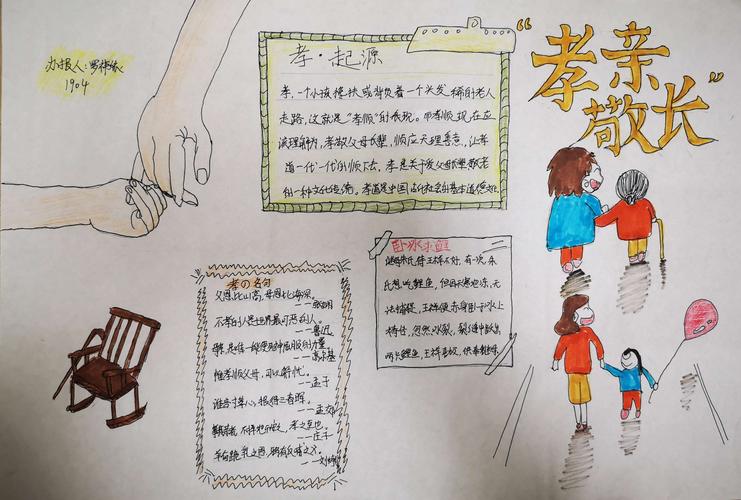 “孝亲
敬长”
办报人：罗
1904
孝·起源
孝，一个小孩搀扶或背负着一个头发稀的老人
走路，这就是“孝顺”的表现。而孝顺，现在应
该理解为，孝敬父母长辈，顺应天理善意，让孝
道一代一代的顺下去，孝是关于爱父母长辈敬老
的一种文化传统。孝道是中国古代社会的基本道德
卧冰求鲤
继母朱氏待王祥不好，有一次，朱
氏想吃鲤鱼，但因天寒地冻，无
法捕捉，王祥便赤身卧于冰上
忽然冰裂，裂缝中跃出
两尾鲤鱼，王祥喜极，供奉继母。
孝の名句
父恩比山高，母恩比海深。
不孝的人是世界最可恶的人。
——鲁迅
——高尔基
惟孝顺父母，可以解忧。
——孟子
谁言寸草心，报得三春晖。
——孟郊
孝之至也。
——庄子
羊有跪乳之恩，鸦有反哺之义。